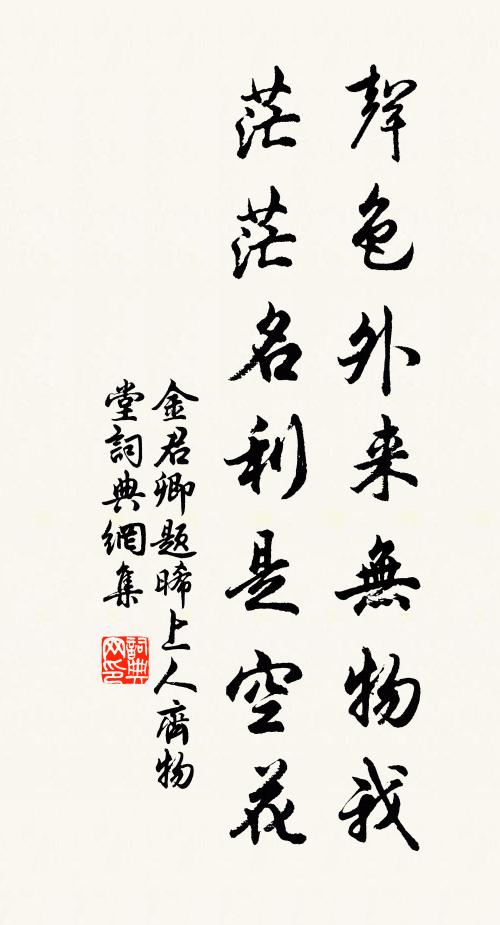 聲色外来無物我
茫茫名利是空花
金君卿題晞上人齊物
堂詞典網集
詞典网印